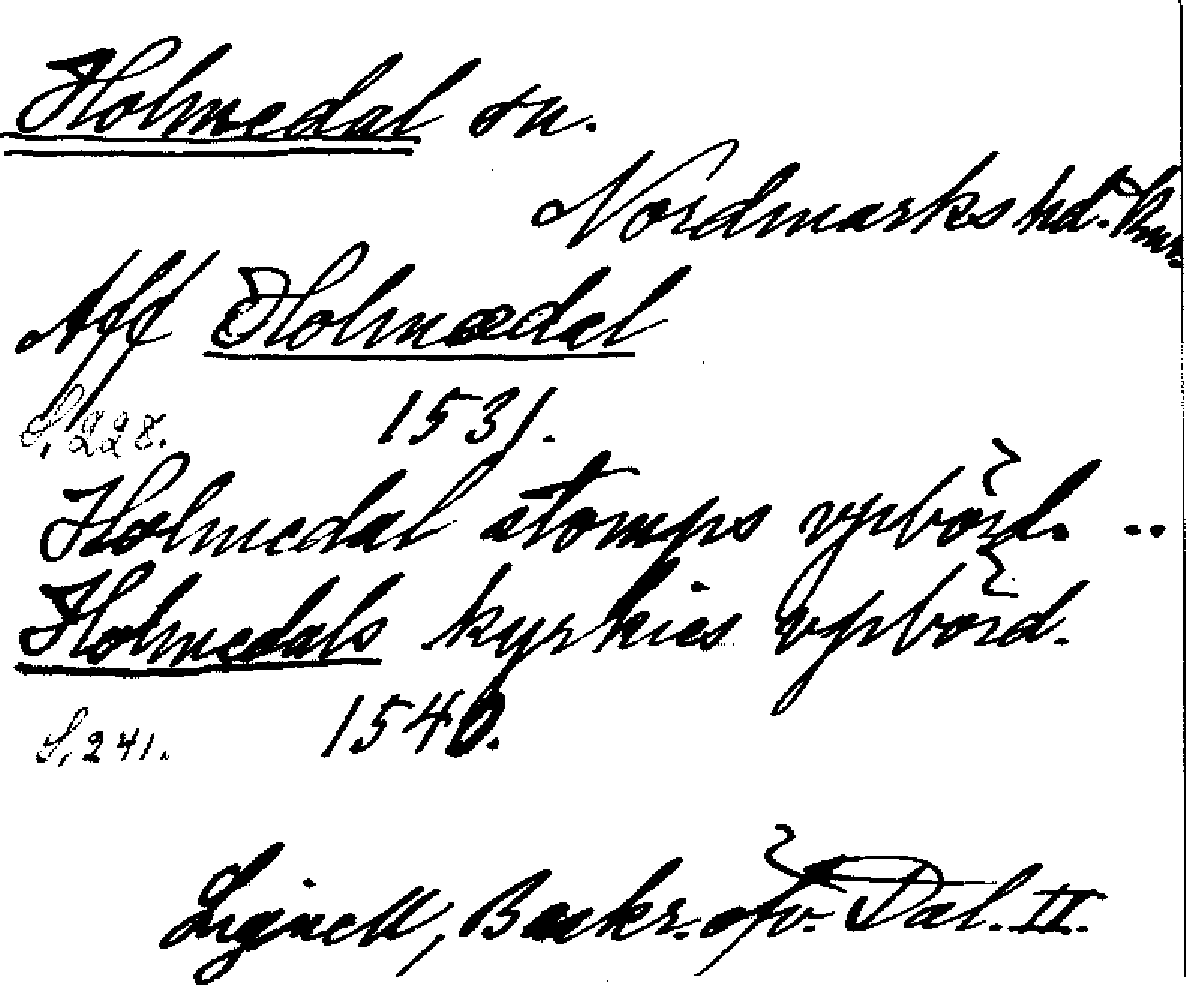 Holmedal sn.
Nordmarks hd.
Aff Holmædal
S. 228. 1531.
Holmedal stomps vpbörd. ..
Holmedals kyrkies vpbörd.
S. 241. 1540.
Lignell, Beskr. öfv. Dal. II.